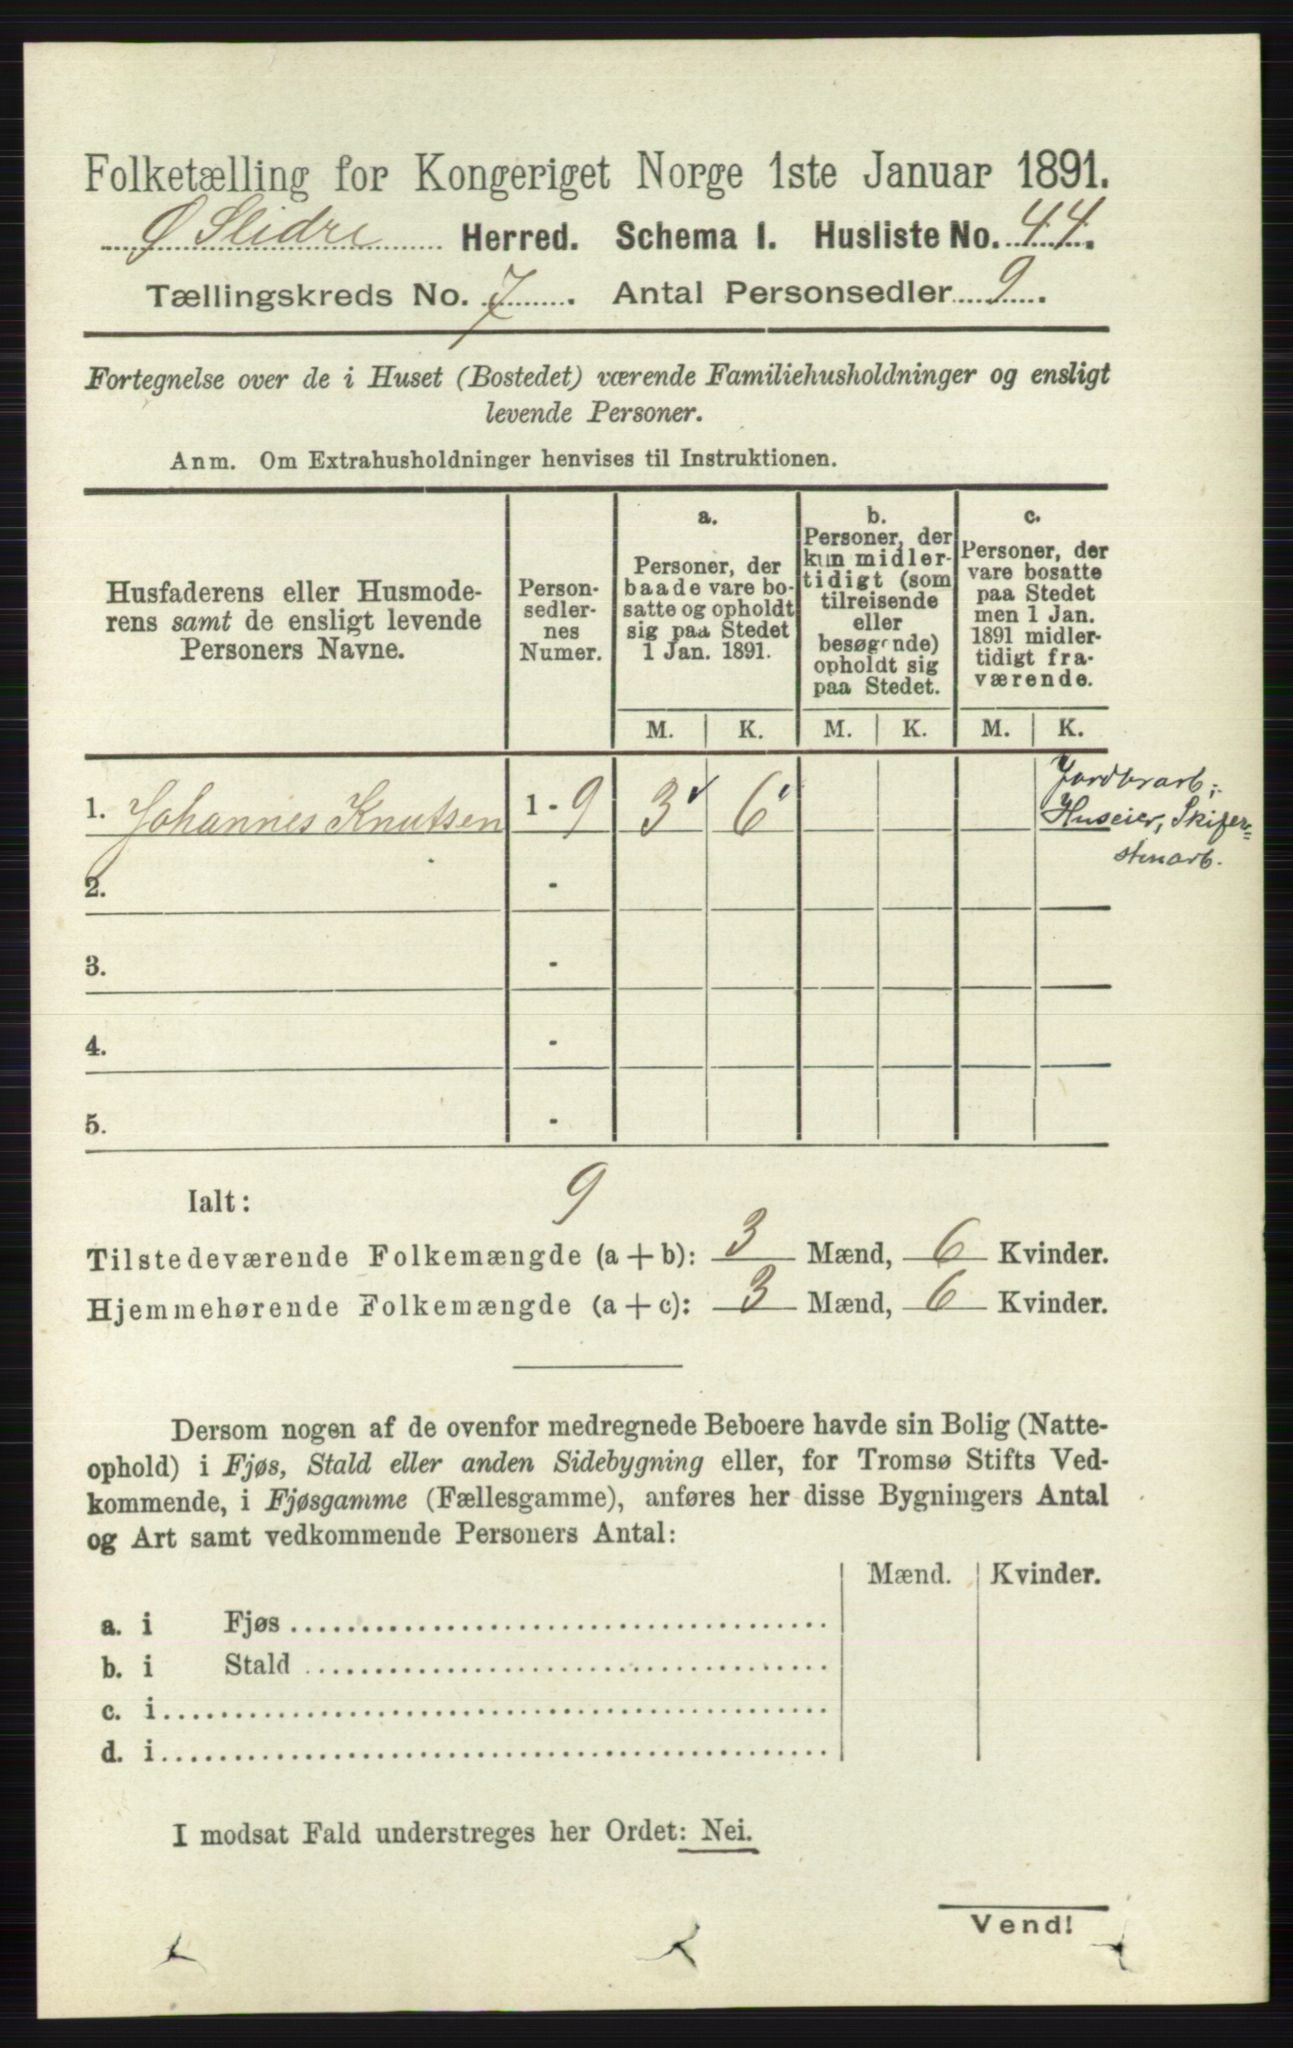 Folketælling for Kongeriget Norge 1ste Januar 1891.
Ø Slidre Herred. Schema I. Husliste No. 44.
Tællingskreds No. 7. Antal Personsedler 9.
Fortegnelse over de i Huset (Bostedet) værende Familiehusholdninger og ensligt
levende Personer.
Anm. Om Extrahusholdninger henvises til Instruktionen.
Husfaderens eller Husmode-
rens samt de ensligt levende
Personers Navne.
Person-
sedler-
nes
Numer.
a.
Personer, der
baade vare bo-
satte og opholdt
sig paa Stedet
1 Jan. 1891.
b.
Personer, der
kun midler-
tidigt (som
tilreisende
eller
besøgende)
opholdt sig
paa Stedet.
c.
Personer, der
vare bosatte
paa Stedet
men 1 Jan.
1891 midler-
tidigt fra-
værende.
M. K. M. K. M. K.
1. Johannes Knutsen 1 - 9 3 6
Jordbrarb;
Huseier, Skifer=
stenarb.
2. -
3. -
4. -
5. -
Ialt: 9
Tilstedeværende Folkemængde (a + b): 3 Mænd, 6 Kvinder.
Hjemmehørende Folkemængde (a + c): 3 Mænd, 6 Kvinder.
Dersom nogen af de ovenfor medregnede Beboere havde sin Bolig (Natte-
ophold) i Fjøs, Stald eller anden Sidebygning eller, for Tromsø Stifts Ved-
kommende, i Fjøsgamme (Fællesgamme), anføres her disse Bygningers Antal
og Art samt vedkommende Personers Antal:
Mænd. Kvinder.
a. i Fjøs
b. i Stald
c. i
d. i
I modsat Fald understreges her Ordet: Nei.
Vend!